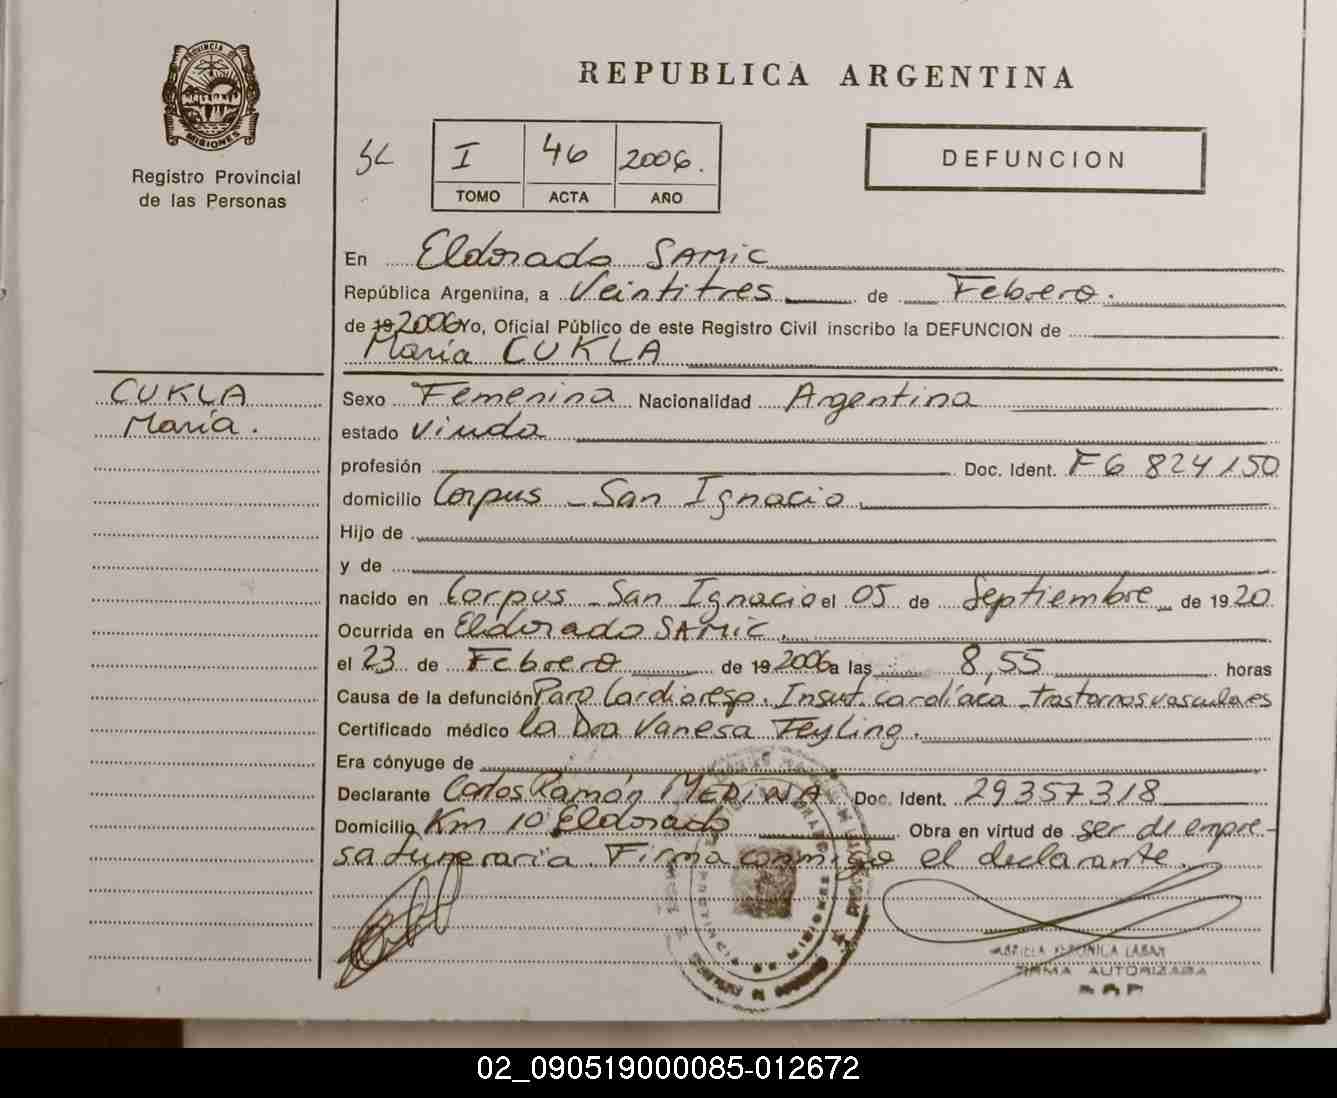 PROVINCIA DE
MISIONES
Registro Provincial
de las Personas
REPUBLICA ARGENTINA
I 46 2006.
TOMO ACTA AÑO
DEFUNCION
En Eldorado SAMIC
República Argentina, a Veintitres de Febrero.
de 19 2006 Yo, Oficial Público de este Registro Civil inscribo la DEFUNCION de
María CUKLA
CUKLA
María.
Sexo Femenina Nacionalidad Argentina
estado Viuda
profesión Doc. Ident. F6 824150
domicilio Corpus - San Ignacio
Hijo de
y de
nacido en Corpus - San Ignacio el 05 de Septiembre de 19 20
Ocurrida en Eldorado SAMIC.
el 23 de Febrero de 19 2006 a las 8,55 horas
Causa de la defunción Paro Cardioresp. Insuf. cardíaca - trastornos vasculares
Certificado médico la Dra Vanesa Feyling.
Era cónyuge de
Declarante Carlos Ramón MEDINA Doc. Ident. 29357318
Domicilio Km 10 Eldorado Obra en virtud de ser de empre-
sa funeraria. Firma conmigo el declarante.
FIRMA AUTORIZADA
02_090519000085-012672